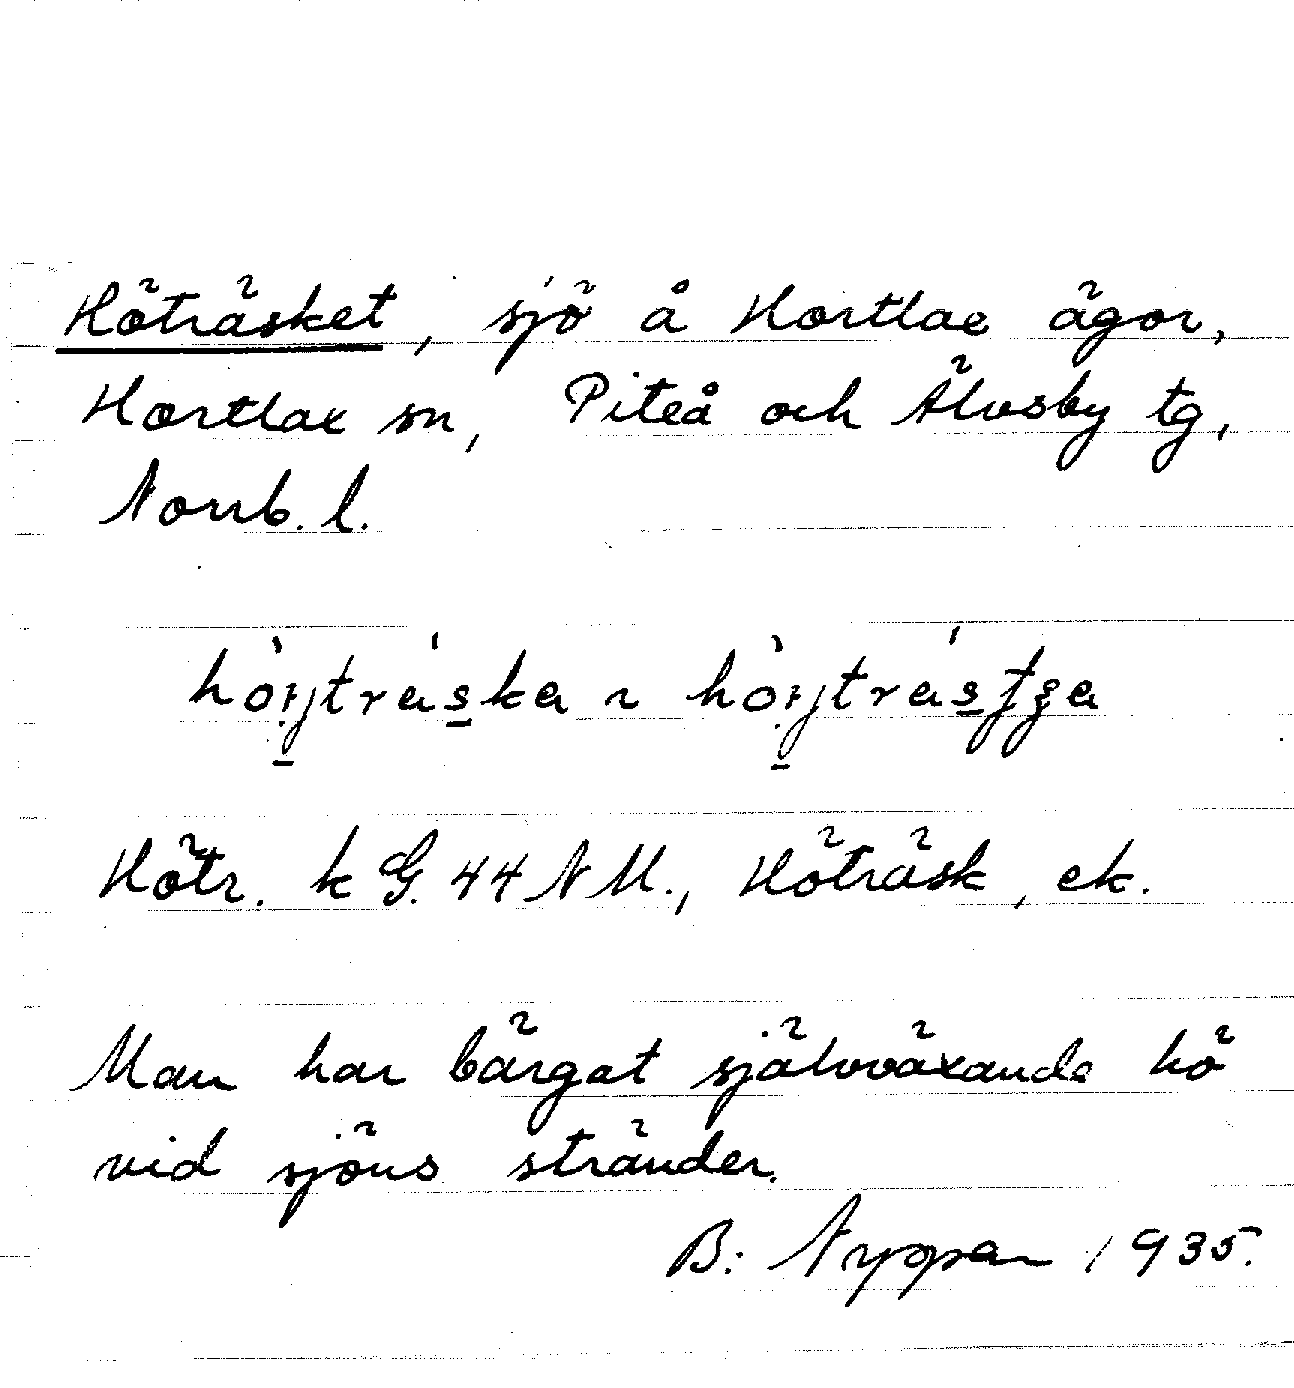 Höträsket, sjö å Hortlax ägor,
Hortlax sn, Piteå och Älvsby tg,
Norrb. l.
Hötr. k G. 44 NM., Höträsk, ek.
Man har bärgat självväxande hö
vid sjöns stränder.
B: Nyppan 1935.